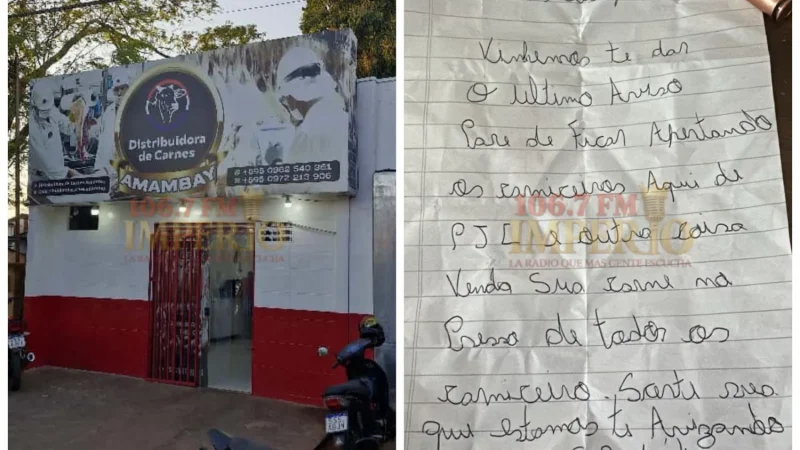 Distribuidora
de Carnes
AMAMBAY
+595 0982 540 361
+595 0972 213 906
106.7 FM
IMPERIO
LA RADIO QUE MAS GENTE ESCUCHA
Venhemos te dar
O Ultimo Aviso
Pare de Ficar Apertando
os carniceiros Aqui de
PJC outra coisa
Venda Sua carne no
Presso de todos os
carniceiro. Sorte sua
que estamos te Avizando
106.7 FM
IMPERIO
LA RADIO QUE MAS GENTE ESCUCHA